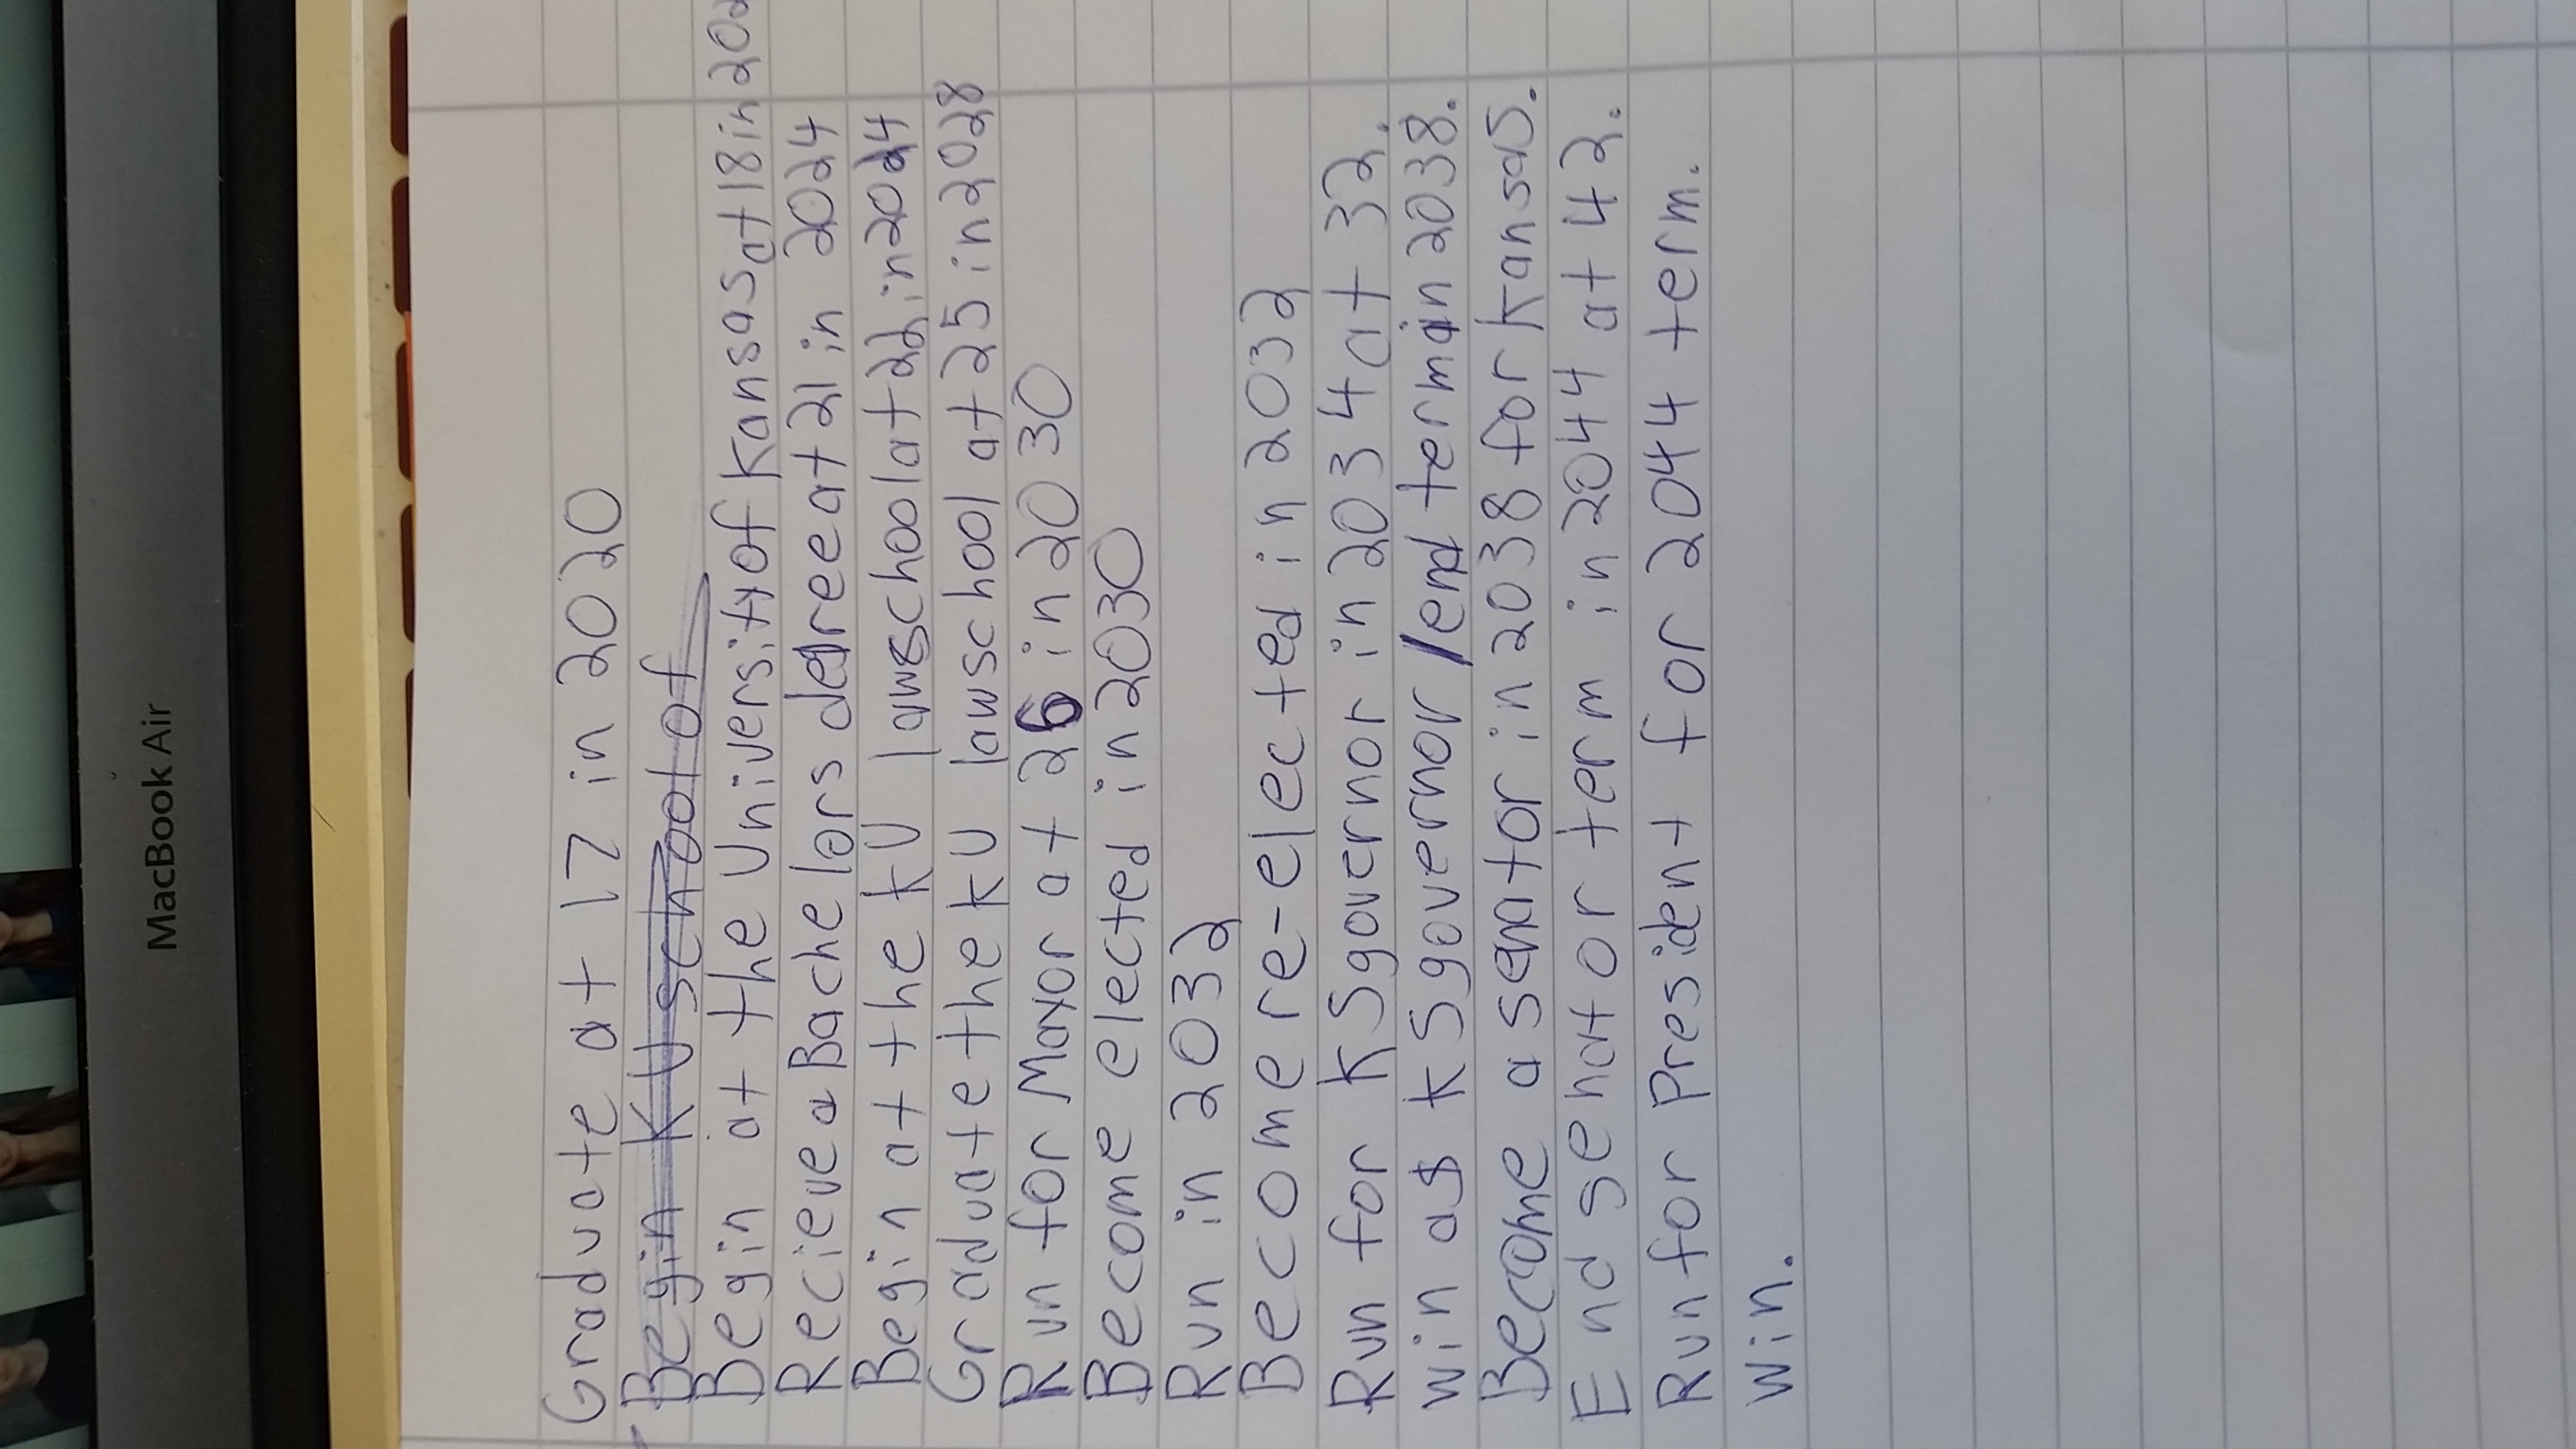 MacBook Air
Graduate at 17 in 2020
Begin KU school of
Begin at the University of Kansas at 18 in 202
Recieve a Bachelors degree at 21 in 2024
Begin at the KU law school at 22 in 2024
Graduate the KU law school at 25 in 2028
Run for Mayor at 26 in 2030
Become elected in 2030
Run in 2032
Become re-elected in 2032
Run for KS governor in 2034 at 32.
Win as KS governor/end term in 2038.
Become a senator in 2038 for Kansas.
End senator term in 2044 at 42.
Run for President for 2044 term.
Win.